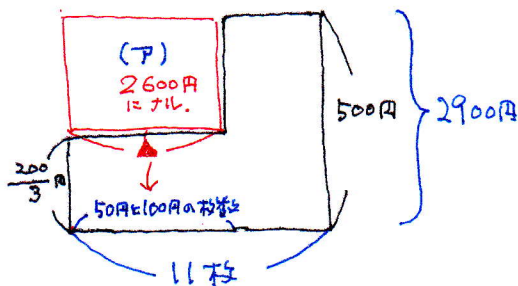 (ア)
2600円
ニナル.
500円
2900円
200/3 円
▲
50円と100円の枚数
11枚